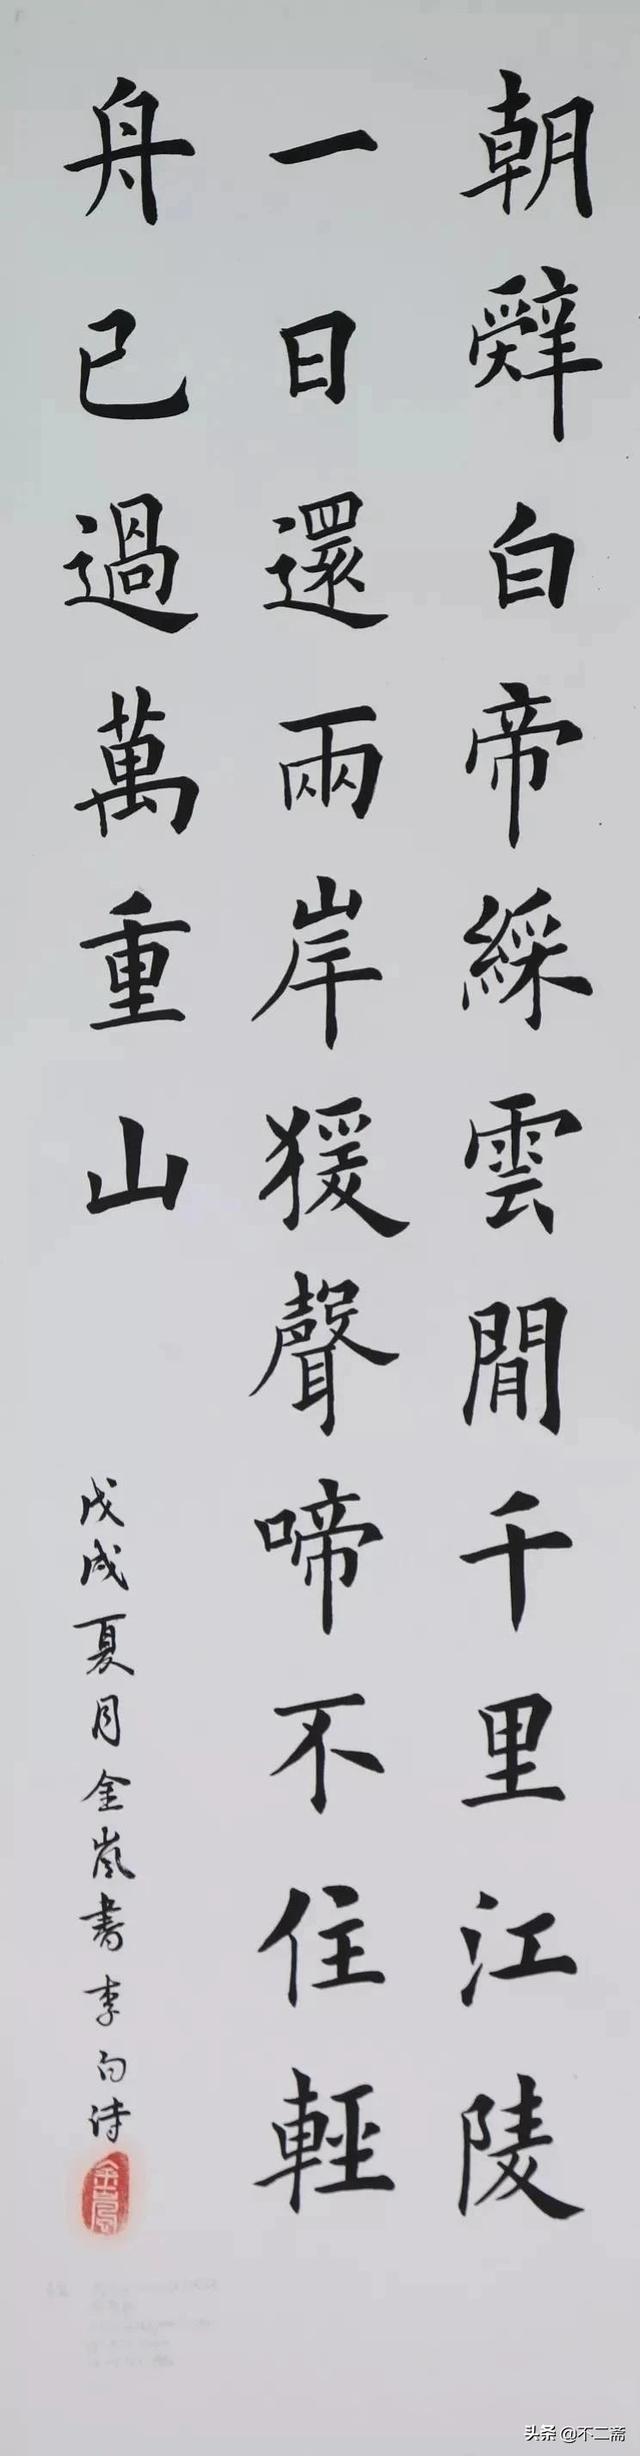 朝辤白帝綵雲間千里江陵
一日還兩岸猨聲啼不住輕
舟已過萬重山
戊戌夏月金嵐書李白诗
金嵐
头条 @不二斋